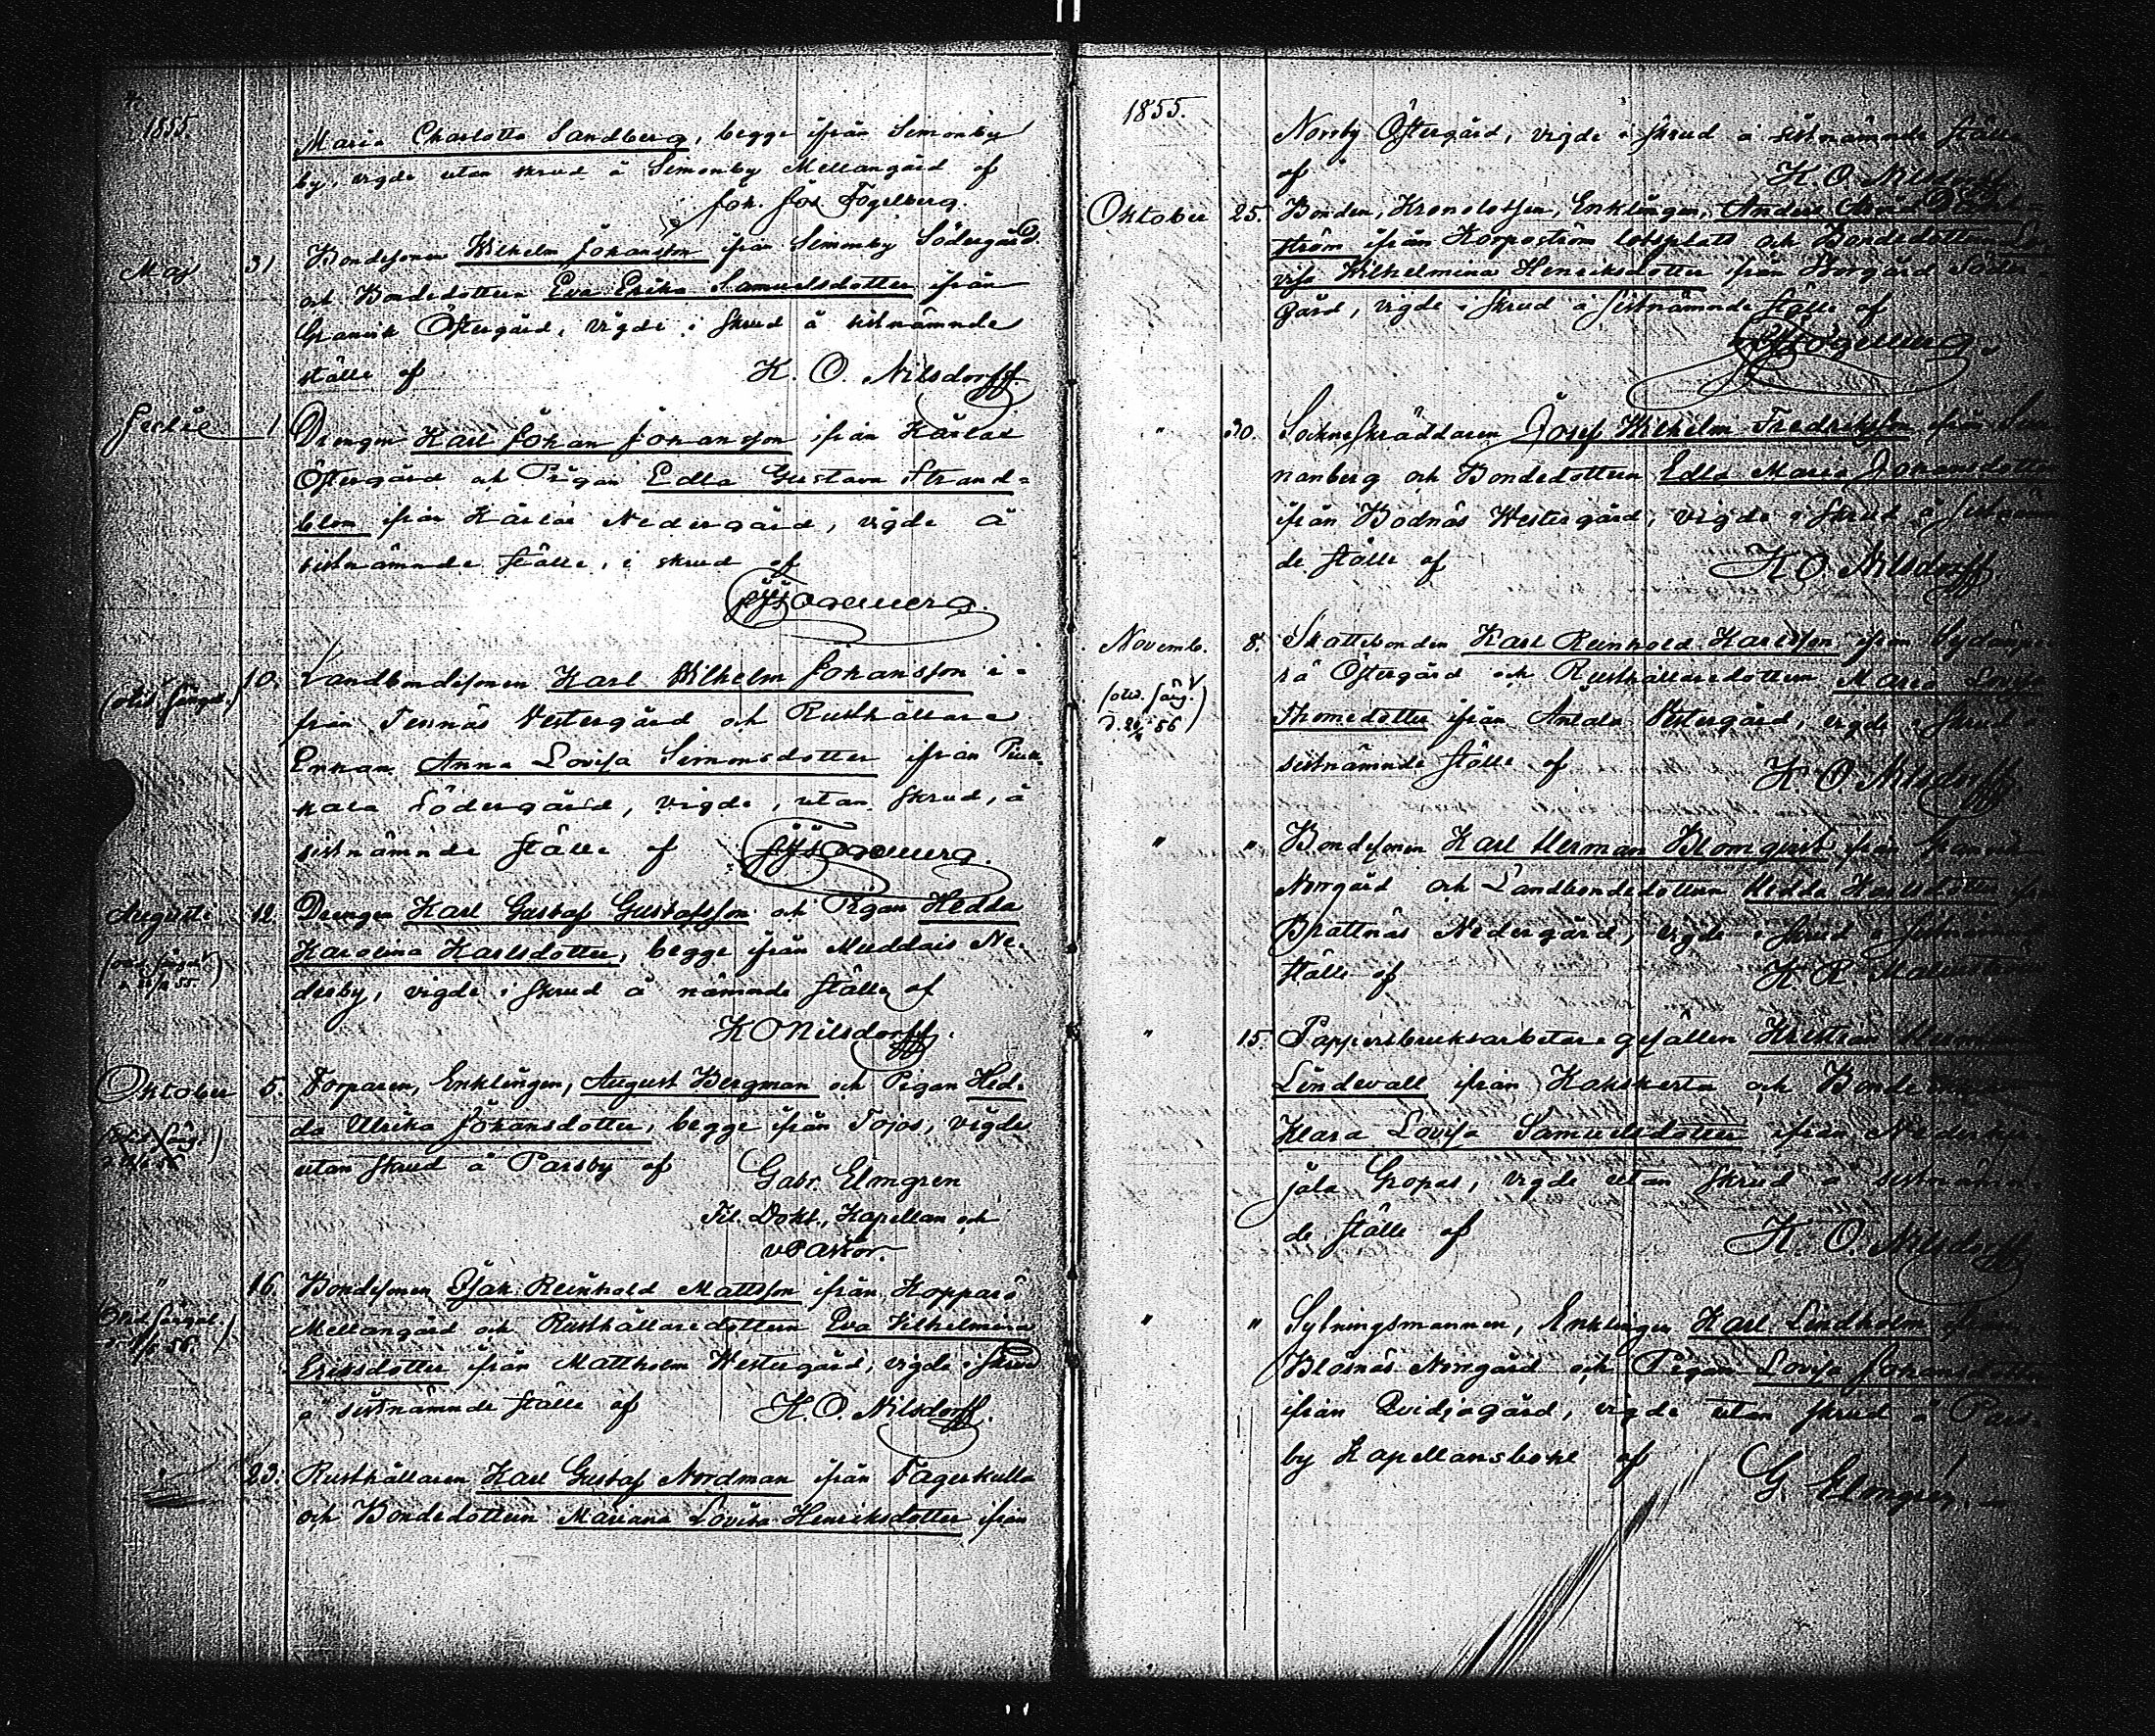 1855.
Maria Charlotta Sandberg, begge ifrån Simonby
by, vigde utan skrud å Simonby Mellangård af
Joh. Jos. Fogelberg.
Maj 31 Bondesonen Wilhelm Johansson ifrån Simonby Södergård
och Bondedottern Eva Erika Samuelsdotter ifrån
Granvik Östergård, vigde i skrud å sistnämnde
ställe af K. O. Nilsdorff.
1 Drengen Karl Johan Johansson ifrån Kärlax
Östergård och Pigan Edla Gustava Strand-
blom ifrån Kärlax Nedergård, vigde å
sistnämnde ställe, i skrud af
JJFogelberg.
10. Landbondesonen Karl Wilhelm Johansson i-
från Tennäs Vestergård och Rusthållare
Enkan Anna Lovisa Simonsdotter ifrån Pick-
kala Södergård, vigde, utan skrud, å
sistnämnde ställe af JJFogelberg.
Augusti 12. Drengen Karl Gustaf Gustafsson och Pigan Hedda
Karolina Karlsdotter, begge ifrån Muddais Ne-
derby, vigde i skrud å nämnde ställe af
K O Nilsdorff.
Oktober 5. Torparen, Enklingen, August Bergman och Pigan Hed-
da Ulrika Johansdotter, begge ifrån Tojos, vigde
utan skrud å Parsby af Gabr. Elmgren
Fil. Dokt., Kapellan och
v Pastor.
" 16. Bondesonen Isak Reinhold Mattsson ifrån Kopparö
Mellangård och Rusthållaredottern Eva Vilhelmina
Eriksdotter ifrån Mattholm Westergård, vigde i skrud
å sistnämnde ställe af K. O. Nilsdorff.
23. Rusthållaren Karl Gustaf Nordman ifrån Fagerkulla
och Bondedottern Mariana Lovisa Henriksdotter ifrån
1855.
Norrby Östergård, vigde i skrud å sistnämnde ställe
af K. O. Nilsdorff
Oktober 25. Bonden, Kronolotsen, Enklingen, Anders
ström ifrån Korpoström lotsplats och Bondedottern Lo-
visa Wilhelmina Henriksdotter ifrån Borgård Söder
gård, vigde i skrud å sistnämnde ställe af
JJFogelberg.
" 30. Sockneskräddaren Josef Wilhelm Fredriksson ifrån
nanberg och Bondedottern Edla Maria Johansdotter
ifrån Bodnäs Westergård, vigde i skrud å sistnämn
de ställe af K O. Nilsdorff
Novemb. 8. Skattebonden Karl Reinhold Karlsson ifrån
Östergård och Rusthållaredottern Maria Lovisa
Thomedotter ifrån Antala Vestergård, vigde i skrud
sistnämnde ställe af K. O. Nilsdorff
" " Bondesonen Karl Herman Blomqvist ifrån
Norrgård och Landbondedottern Hedda Karlsdotter
Brattnäs Nedergård, vigde i skrud å sistnämnde
ställe af K. R.
" 15. Pappersbruksarbetaregesällen Kristian
Lindevall ifrån Kakskerta och Bonde
Klara Lovisa Samuelsdotter ifrån Nederkir-
jala Gropas, vigde utan skrud å sistnämn-
de ställe af K. O. Nilsdorff
" " Sytningsmannen, Enklingen Karl Lindholm ifrån
Bläsnäs Norrgård och Pigan Lovisa Johansdotter
ifrån Qvidjagård, vigde utan skrud å Pars-
by Kapellansbohl af G. Elmgren.